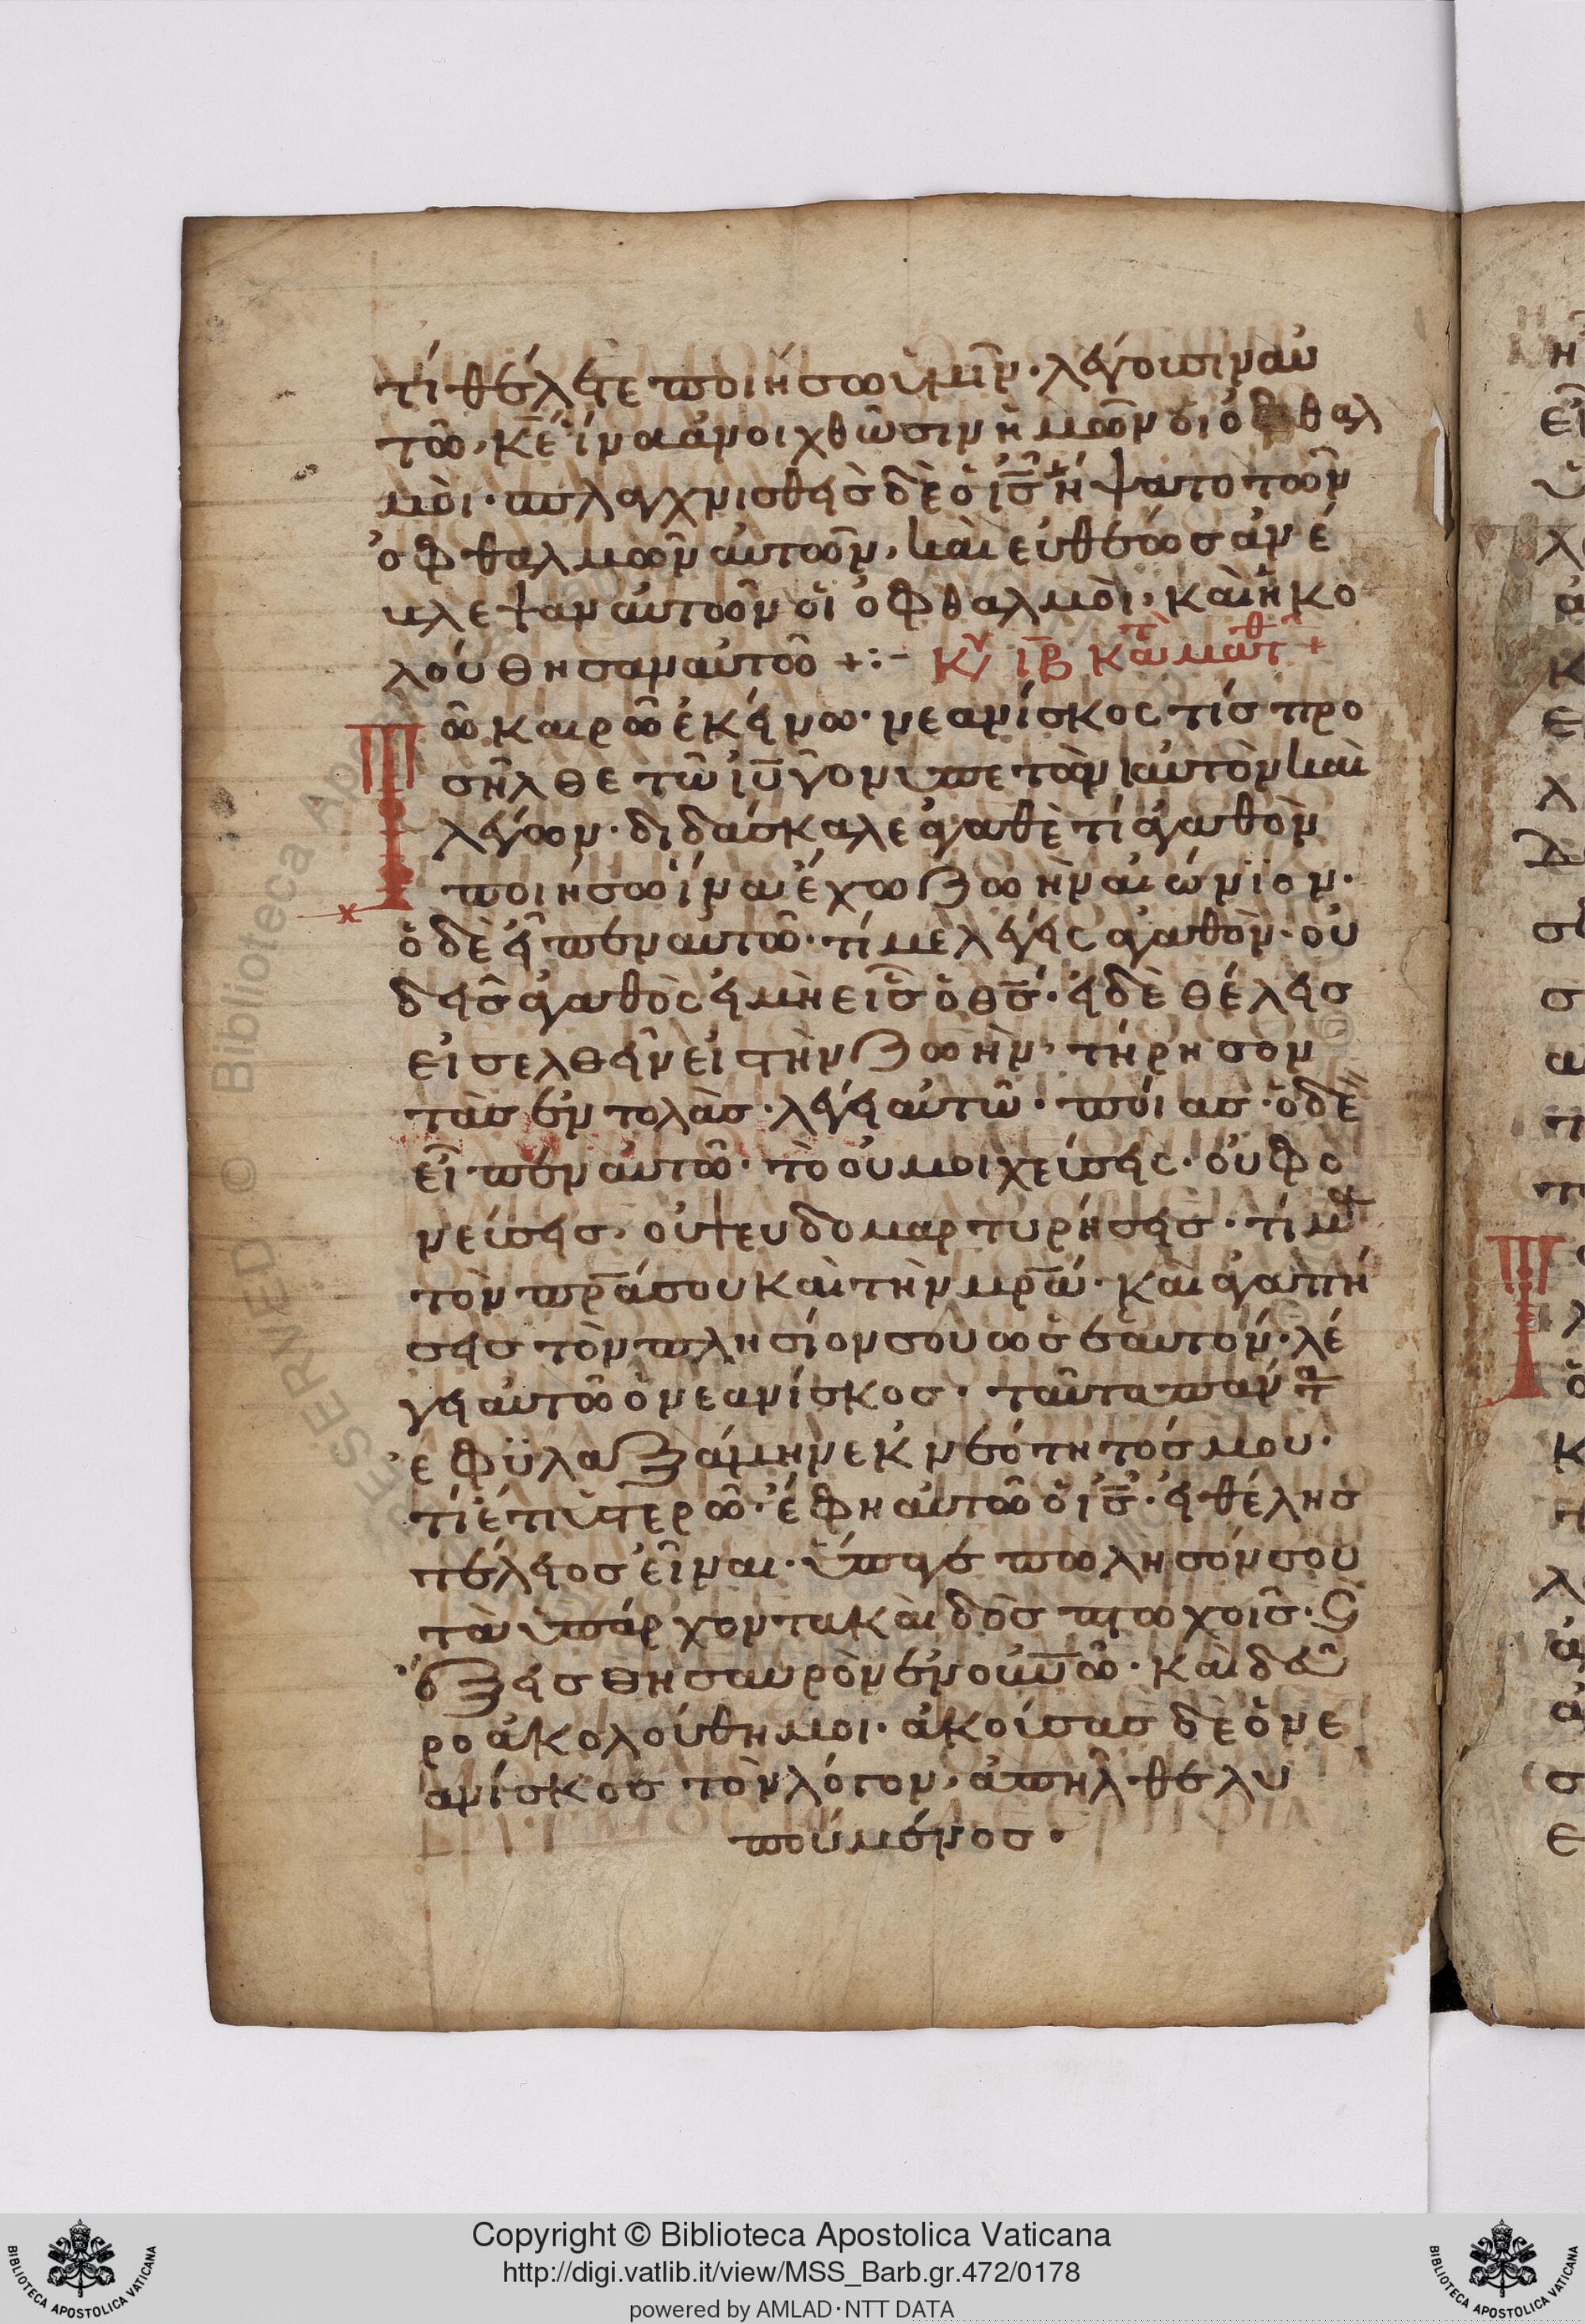 τί θέλετε ποιήσω ὑμῖν· λέγουσιν αὐ
τῶ, κ̅ε̅ ἵνα ἀνοιχθῶσιν ἡμῶν οἱ ὀφθαλ
μοὶ· σπλαχνισθεὶς δὲ ὁ ι̅ς̅ ἥψατο τῶν
ὀφθαλμῶν αὐτῶν, καὶ εὐθέως ἀνέ
βλεψαν αὐτῶν οἱ ὀφθαλμοὶ, καὶ ἠκο
λούθησαν αὐτῶ +:- Κυ ιβ κατὰ ματθ +
Τῶ καιρῶ ἐκείνω· νεανίσκος τίς προ
σῆλθε τῶ ι̅υ̅ γονυπετὸν αὐτὸν καὶ
λέγων· διδάσκαλε ἀγαθὲ τί ἀγαθὸν
ποιήσω ἵνα ἔχω ζωὴν αἰώνϊον·
ὁ δὲ εἶπεν αὐτῶ· τί με λέγεις ἀγαθὸν· οὐ
δεὶς ἀγαθὸς εἰ μὴ εἷς ὁ θ̅ς̅· εἰ δὲ θέλεις
εἰσελθεῖν εἰ τὴν ζωὴν, τήρησον
τὰς ἐντολὰς· λέγει αὐτῶ· ποίας· ὁ δὲ
εἶπεν αὐτῶ· τὸ οὐ μοιχεύσεις· οὐ φο
νεύσεις, οὐ ψευδομαρτυρήσεις· τίμα
τὸν π̅ρ̅α̅ σου καὶ τὴν μ̅ρ̅α̅· καὶ ἀγαπή
σεις τὸν πλησίον σου ὡς σεαυτόν· λέ
γει αὐτῶ ὁ νεανίσκος· ταῦτα πάντα
ἐφϋλαξάμην ἐκ νεότητός μου·
τί ἔτι ὑστερῶ· ἔφη αὐτῶ ὁ ι̅ς̅· εἰ θέλης
τέλειος εἶναι· ὕπαγε πωλησόν σου
τὰ ὑπάρχοντα καὶ δὸς πτωχοῖς· ϛ
ἕξεις θησαυρὸν ἐν οὐ̅ν̅ῶ· καὶ δεῦ
ρο ἀκολούθη μοι· ἀκούσας δὲ ὁ νε
ανίσκος τὸν λόγον, ἀπῆλθε λυ
πούμενος·
Copyright © Biblioteca Apostolica Vaticana
http://digi.vatlib.it/view/MSS_Barb.gr.472/0178
powered by AMLAD·NTT DATA
BIBLIOTECA APOSTOLICA VATICANA
BIBLIOTECA APOSTOLICA VATICANA